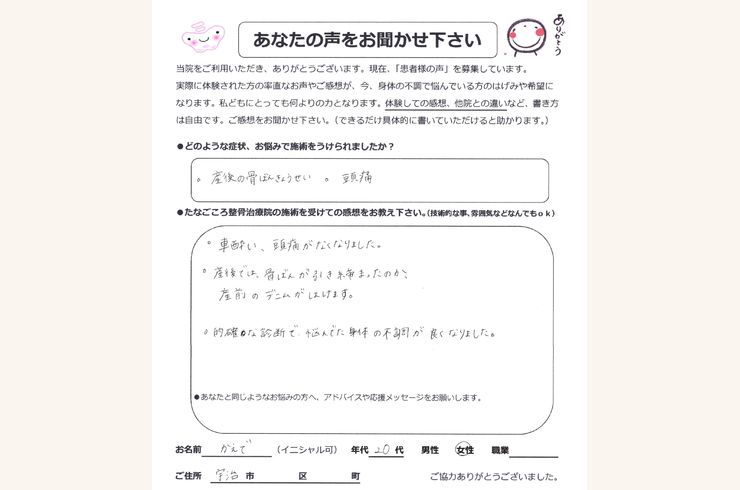 あなたの声をお聞かせ下さい
ありがとう
当院をご利用いただき、ありがとうございます。現在、「患者様の声」を募集しています。
実際に体験された方の率直なお声やご感想が、今、身体の不調で悩んでいる方のはげみや希望に
なります。私どもにとっても何よりの力となります。体験しての感想、他院との違いなど、書き方
は自由です。ご感想をお聞かせ下さい。（できるだけ具体的に書いていただけると助かります。）
●どのような症状、お悩みで施術をうけられましたか？
。産後の骨ばんきょうせい 。頭痛
●たなごころ整骨治療院の施術を受けての感想をお教え下さい。（技術的な事、雰囲気などなんでもｏｋ）
。車酔い、頭痛がなくなりました。
。産後では、骨ばんが引き締まったのか、
産前のデニムがはけます。
。的確な診断で、悩んでた身体の不調が良くなりました。
●あなたと同じようなお悩みの方へ、アドバイスや応援メッセージをお願いします。
お名前 かえで （イニシャル可） 年代 20 代 男性 女性 職業
ご住所 宇治 市 区 町 ご協力ありがとうございました。